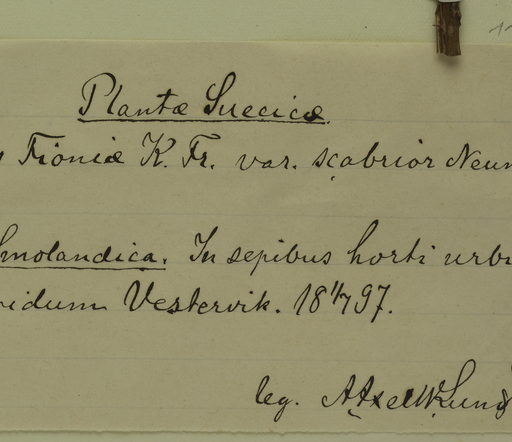 Plantæ Suecicæ.
Fioniæ K. Fr. var. scabrior Neum
Smolandica. In sepibus horti urbi
pidum Vestervik. 18 11/7 97.
leg. A Axel W. Lund